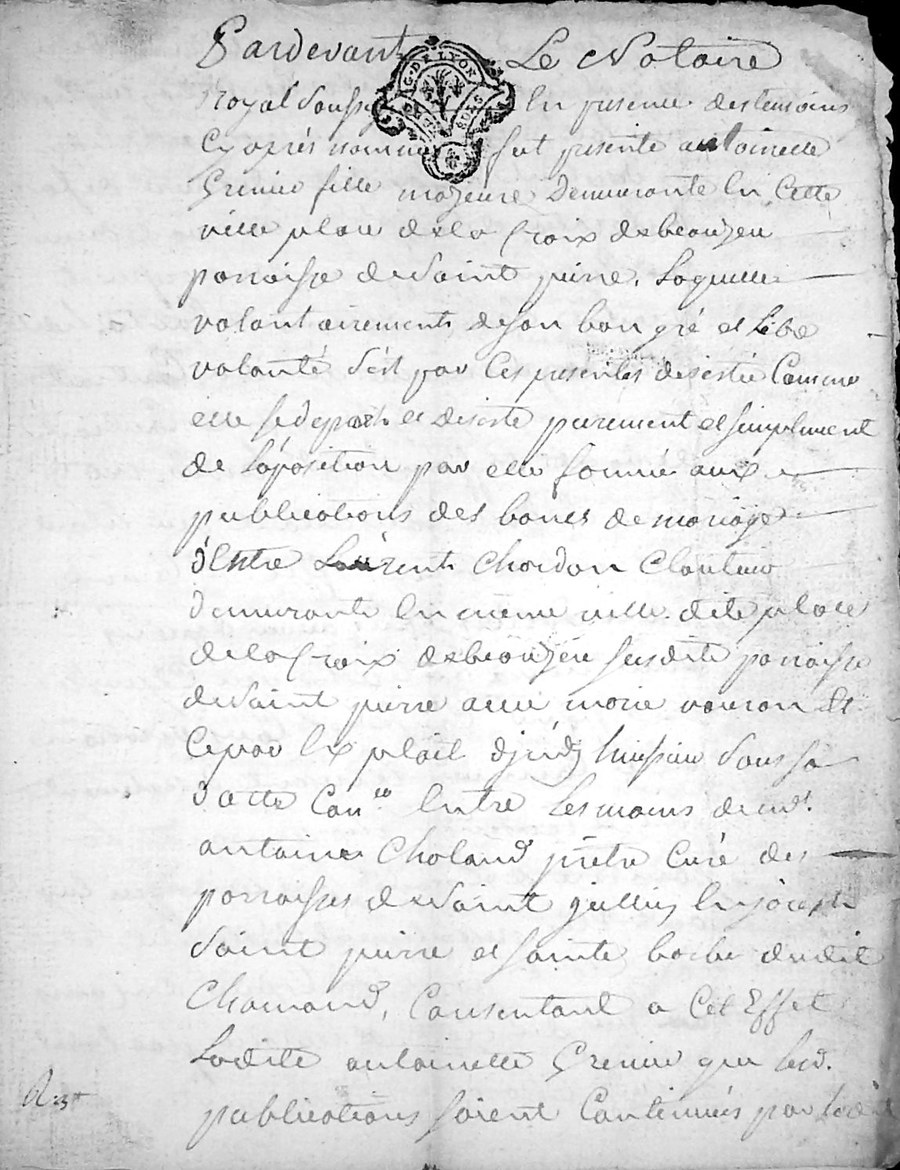 Pardevant Le Notaire
Royal Soussig En presence des temoins
Cy après nommé fut presente antoinette
Grenier fille majeure Demeurante En Cette
ville place dela Croix debeaujeu
parroisse de Saint pierre, Laquelle
volontairement deson bon gré et Libre
volonté s'est par Ces presentes desistée Comme
elle se depart et desiste purement et simplement
de L'oposition par elle formée aux
publications des bancs de mariage
d'Entre Laurent Chordon Cloutier
demeurante En meme ville dite place
dela Croix debeaujeu susdite parroisse
de Saint pierre avec marie Et
Ce par Exploit d' huissier Sous sa
datte Con.re Entre Les mains de m.r
antoine Choland prêtre Curé des
parroisses de Saint jullien En jarest
Saint pierre et Sainte barbe dudit
Chamond, Consentant a Cet Effet
Ladite antoinette Grenier que lesd.
publications soient Continuées par ledit